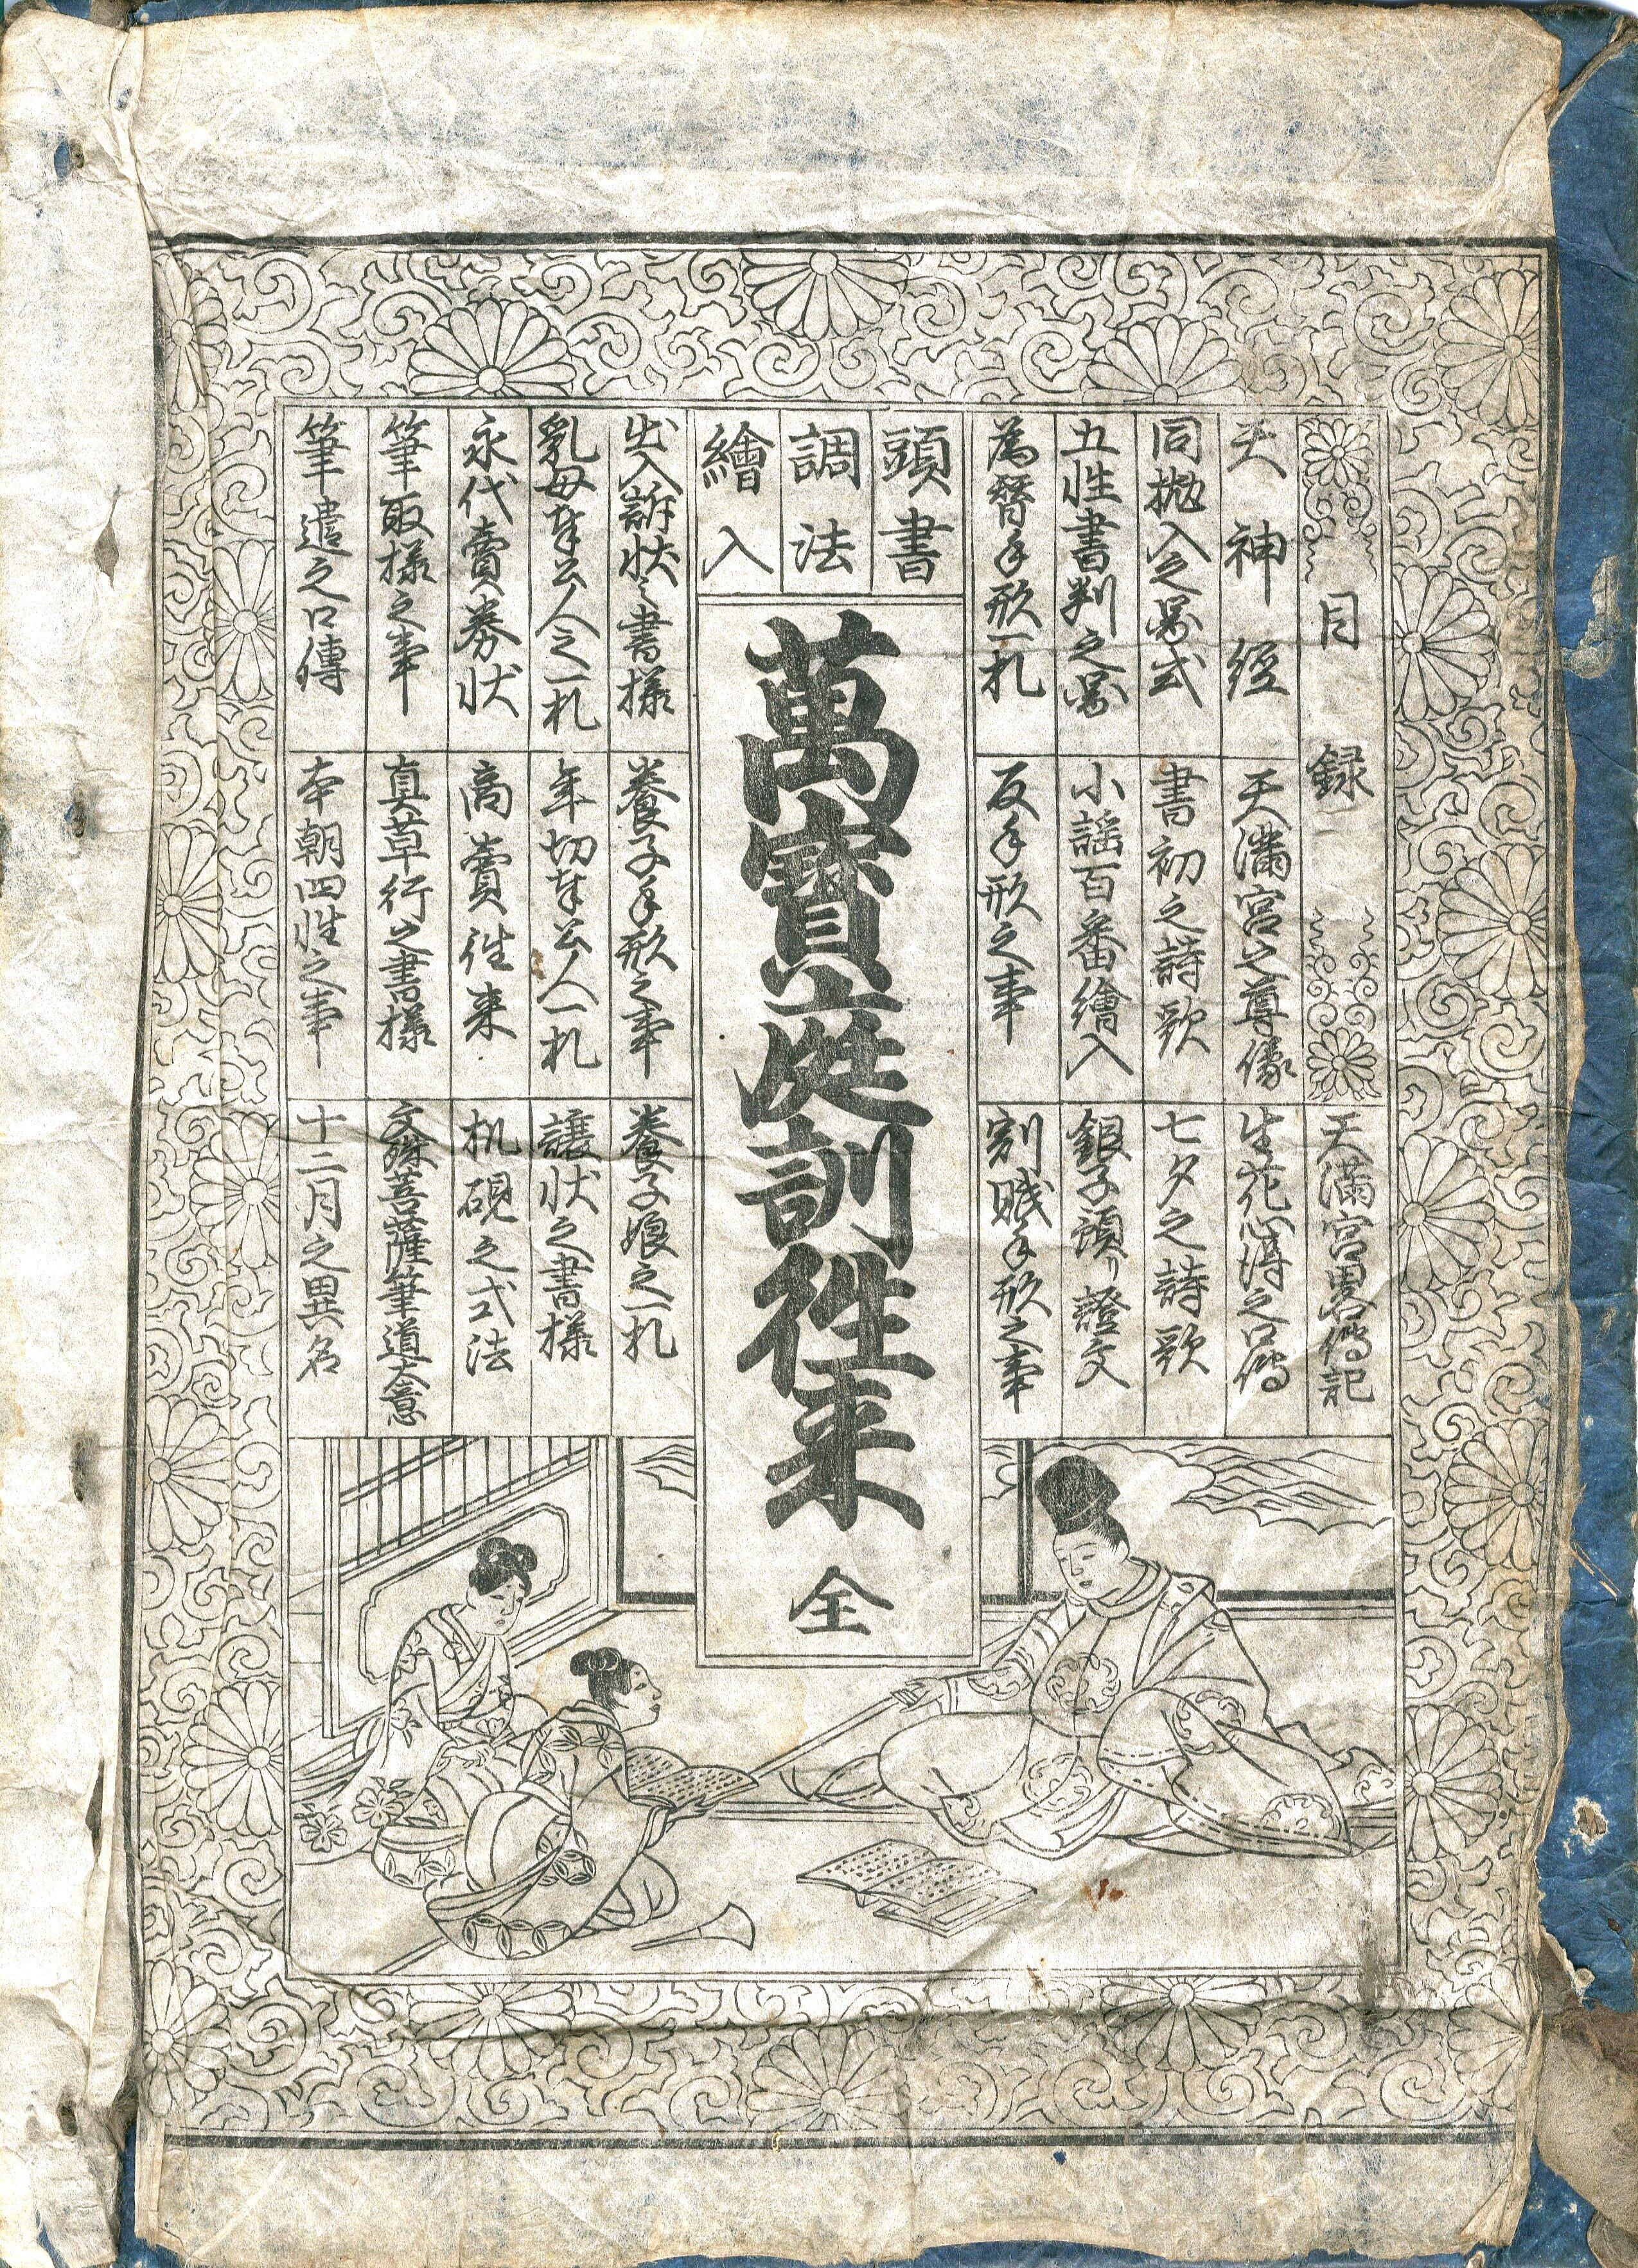 目録
天満宮畧傳記
天神經
天滿宮之尊像
生花心得之口傳
同抛入之圖式
書初之詩歌
七夕之詩歌
五性書判之圖
小謡百番繪入
銀子預り證文
為替手形一札
反手形之事
割賦手形之事
頭書
調法
繪入
萬寳庭訓徃来 全
出入訴状之書様
養子手形之事
養子娘之一札
乳母奉公人之一札
年切奉公人一札
譲状之書様
永代賣券状
商賣徃来
机硯之式法
筆取様之事
真草行之書様
文殊菩薩筆道大意
筆遣之口傳
本朝四性之事
十二月之異名